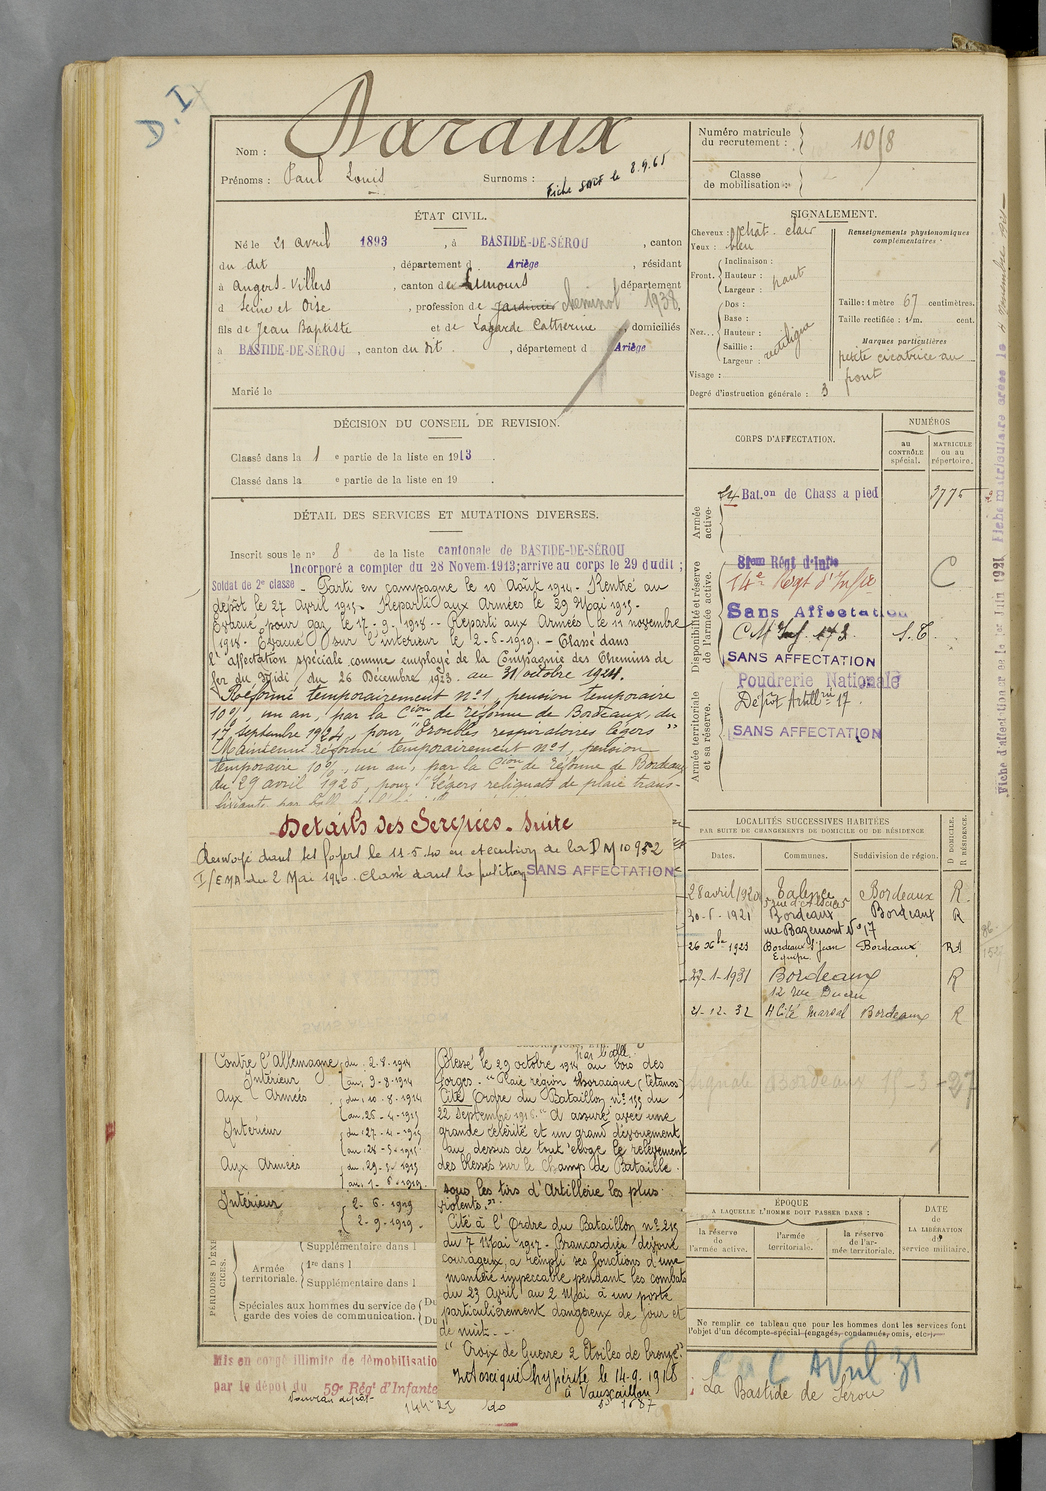 D.I
Nom : Naraux
Prénoms : Paul Louis Surnoms :
Fiche le 8.9.65
Numéro matricule du recrutement : 1018
Classe de mobilisation :
ÉTAT CIVIL.
Né le 21 avril 1893, à BASTIDE-DE-SÉROU, canton
du dit, département d Ariège, résidant
à Angers-Villers, canton de Limours, département
d Seine et Oise, profession de jardinier cheminot 1938,
fils de Jean Baptiste et de Lagarde Catherine, domiciliés
à BASTIDE-DE-SÉROU, canton du dit, département d Ariège
Marié le
SIGNALEMENT.
Cheveux : chât. clair
Yeux : bleu
Front. Inclinaison :
Hauteur : haut
Largeur :
Nez... Dos :
Base :
Hauteur : rectiligne
Saillie :
Largeur :
Visage :
Renseignements physionomiques complémentaires :
Taille : 1 mètre 67 centimètres.
Taille rectifiée : 1 m. cent.
Marques particulières
petite cicatrice au
front
Degré d'instruction générale : 3
DÉCISION DU CONSEIL DE REVISION.
Classé dans la 1 e partie de la liste en 1913.
Classé dans la e partie de la liste en 19 .
DÉTAIL DES SERVICES ET MUTATIONS DIVERSES.
Inscrit sous le n° 8 de la liste cantonale de BASTIDE-DE-SÉROU
Incorporé a compter du 28 Novem. 1913; arrivé au corps le 29 dudit ;
Soldat de 2e classe - Parti en campagne le 10 Août 1914 - Rentré au
dépôt le 27 April 1915 - Reparti aux Armées le 29 Mai 1915 -
Evacué pour gaz le 17-9-1918 - Reparti aux Armées le 11 novembre
1918. Evacué sur l'intérieur le 2-6-1919. - Classé dans
l'affectation spéciale comme employé de la Compagnie des Chemins de
fer du Midi, du 26 Décembre 1923 au 31 octobre 1924.
Réformé temporairement n°1, pension temporaire
10%, un an, par la Cion de réforme de Bordeaux, du
17 septembre 1924, pour "Troubles respiratoires légers"
Maintenu réformé temporairement n°1, pension
temporaire 10%, un an, par la Cion de réforme de Bordeaux
du 29 avril 1925, pour "Légers reliquats de plaie trans-
Details des Services - Suite
Renvoyé dans ses foyers le 11-5-40 en exécution de la D M 10952
I/EMA du 2 Mai 1940. Classé dans la position SANS AFFECTATION
CORPS D'AFFECTATION.
NUMÉROS
au CONTRÔLE spécial.
MATRICULE OU AU répertoire.
Armée active.
24 Bat.on de Chass a pied 3775
Disponibilité et réserve de l'armée active.
81eme Régt d'Infie
14e Regt d'Infie C
Sans Affectation
C M Inf. 173 S.T.
SANS AFFECTATION
Armée territoriale et sa réserve.
Poudrerie Nationale
Dépôt Artillrie 17.
SANS AFFECTATION
Fiche d'affectation créée le 1er Juin 1921
LOCALITÉS SUCCESSIVES HABITÉES
PAR SUITE DE CHANGEMENTS DE DOMICILE OU DE RÉSIDENCE
Dates. Communes. Subdivision de région. D DOMICILE. R RÉSIDENCE.
28 avril 1920 Talence Bordeaux R.
30-5-1921 Bordeaux Bordeaux R
rue Bazemont N° 17
26 Xbre 1923 Bordeaux St Jean Bordeaux
Equipe
27-1-1931 Bordeaux R
12 rue Ducau
21-12-32 Cité Bordeaux R
Signalé Bordeaux 15-3-27
Contre l'Allemagne du 2-8-1914
Intérieur au 9-8-1914
Aux Armées du 10-8-1914
au 26-4-1915
Intérieur du 27-4-1915
au 28-5-1915
Aux Armées du 29-5-1915
au 1-6-1919.
Intérieur 2-6-1919
2-9-1919.
Blessé le 29 octobre 1914 au bois des par balle.
forges. "Plaie région thoracique (tétanos
Cité Ordre du Bataillon n° 155 du
22 Septembre 1916. "A assuré avec une
grande célérité et un grand dévouement
au dessus de tout éloge le relèvement
des blessés sur le Champ de Bataille.
sous les tirs d'Artillerie les plus
violents."
Cité à l'Ordre du Bataillon n° 215
du 7 Mai 1917 - Brancardier dévoué
courageux, a rempli ses fonctions d'une
manière impeccable pendant les combats
du 23 Avril au 2 Mai à un poste
particulièrement dangereux de jour et
de nuit. -
"Croix de Guerre 2 Etoiles de bronze"
Intoxiqué hypérite le 14-9-1918
à Vauxaillon
PÉRIODES D'EXERCICES.
Supplémentaire dans l
Armée territoriale. 1re dans l
Supplémentaire dans l
Spéciales aux hommes du service de garde des voies de communication. Du
Du
ÉPOQUE
A LAQUELLE L'HOMME DOIT PASSER DANS :
la réserve de l'armée active.
l'armée territoriale.
la réserve de l'armée territoriale.
DATE de LA LIBÉRATION du service militaire.
Ne remplir ce tableau que pour les hommes dont les services font
l'objet d'un décompte spécial (engagés, condamnés, omis, etc.)
Mis en congé illimité de démobilisatio
par le dépôt du 59e Régt d'Infante
144e RI do
Avril 31
La Bastide de Sérou